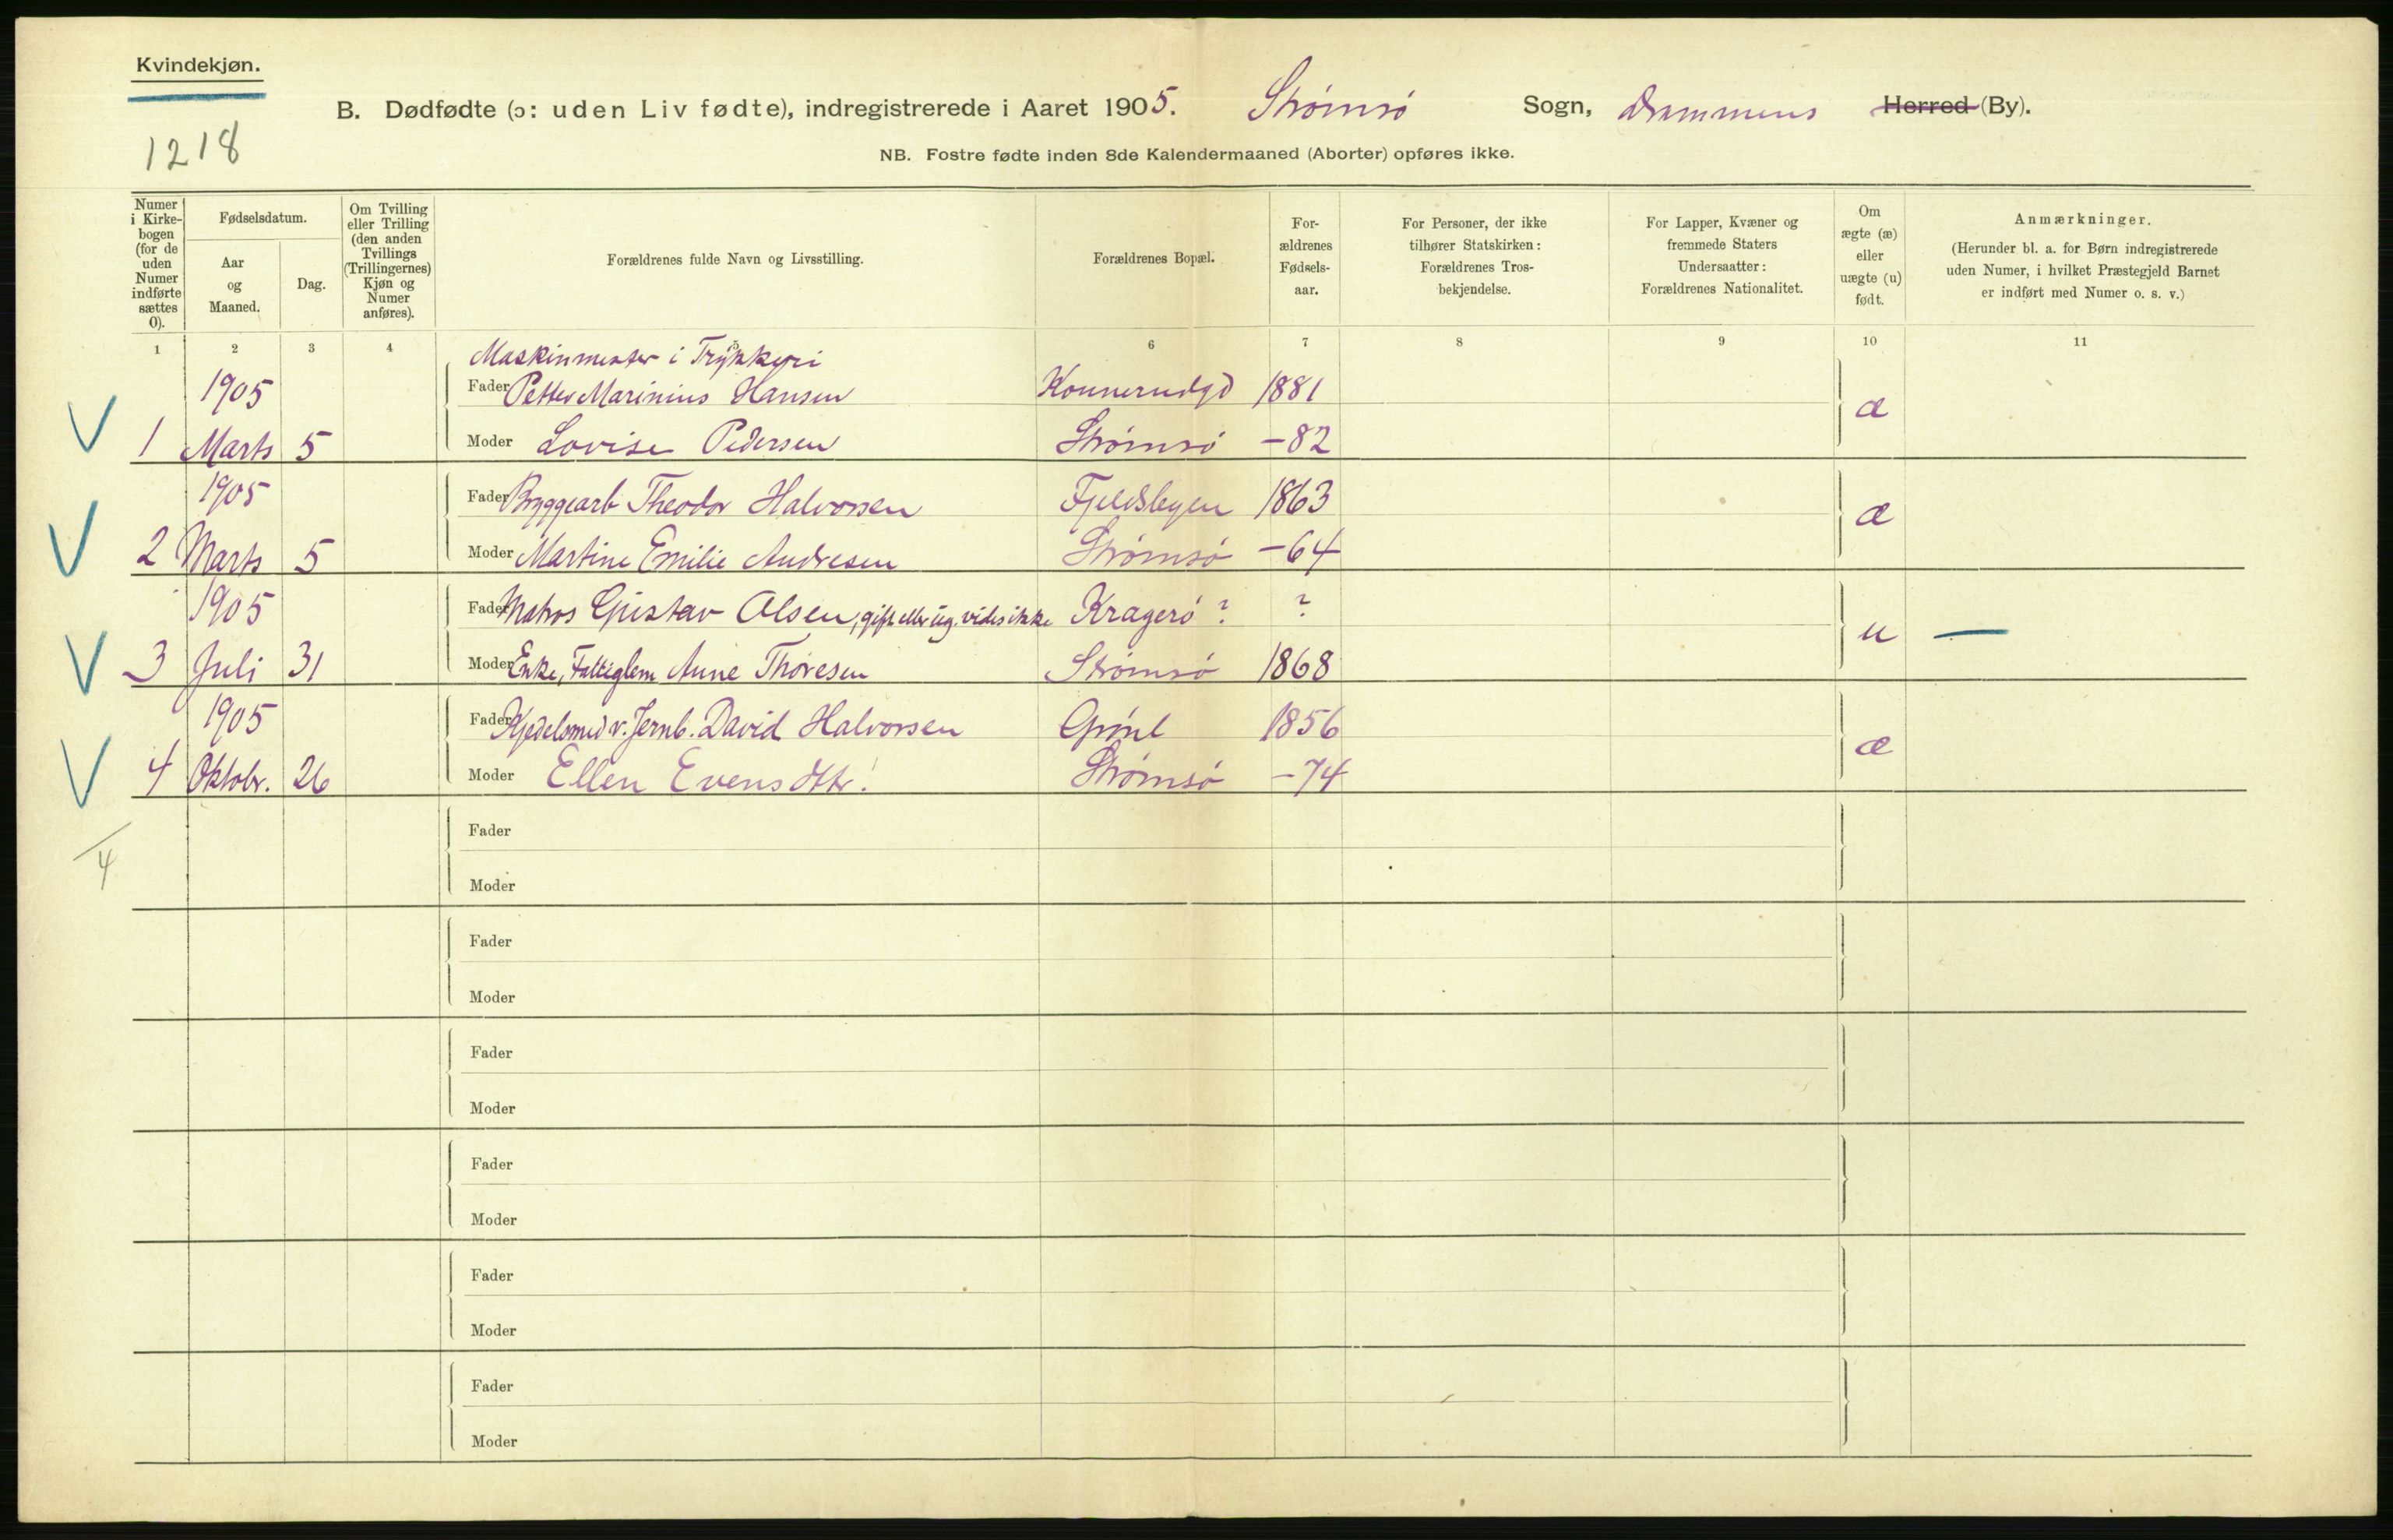 Kvindekjøn.
B. Dødfødte (ɔ: uden Liv fødte), indregistrerede i Aaret 1905. Strømsø Sogn, Drammens Herred (By).
1218
NB. Fostre fødte inden 8de Kalendermaaned (Aborter) opføres ikke.
Numer i Kirke-bogen (for de uden Numer indførte sættes 0).
Fødselsdatum.
Aar og Maaned.
Dag.
Om Tvilling eller Trilling (den anden Tvillings (Trillingernes) Kjøn og Numer anføres).
Forældrenes fulde Navn og Livsstilling.
Forældrenes Bopæl.
For-ældrenes Fødsels-aar.
For Personer, der ikke tilhører Statskirken: Forældrenes Tros-bekjendelse.
For Lapper, Kvæner og fremmede Staters Undersaatter: Forældrenes Nationalitet.
Om ægte (æ) eller uægte (u) født.
Anmærkninger.
(Herunder bl. a. for Børn indregistrerede uden Numer, i hvilket Præstegjeld Barnet er indført med Numer o. s. v.)
1 2 3 4 5 6 7 8 9 10 11
Maskinmester i Trykkeri
1905 Fader Petter Marinius Hansen Konnerudgd 1881
æ
1 Marts 5 Moder Lovise Pedersen Strømsø -82
1905 Fader Bryggearb Theodor Halvorsen 1863
æ
2 Marts 5 Moder Martine Emilie Andresen Strømsø -64
1905 Fader Matros Gustav Olsen, gift eller ug. vides ikke Kragerø ? ?
u —
3 Juli 31 Moder Enke, Fattiglem Anne Thoresen Strømsø 1868
1905 Fader Kjedelsmed v. Jernb. David Halvorsen Grønl 1856
æ
4 Oktobr. 26 Moder Ellen Evensdtr. Strømsø -74
4
Fader
Moder
Fader
Moder
Fader
Moder
Fader
Moder
Fader
Moder
Fader
Moder